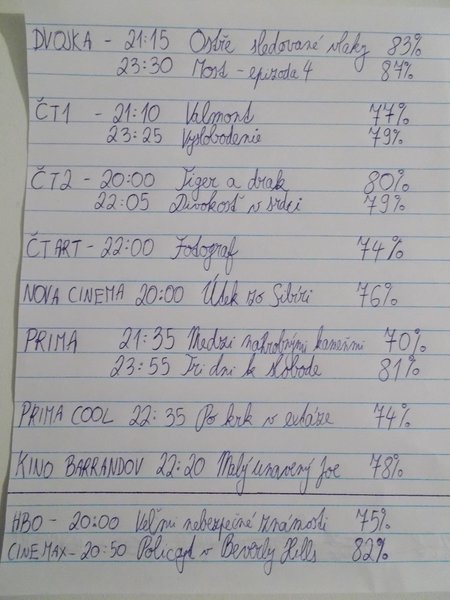 DVOJKA - 21:15 Ostře sledované vlaky 83%
23:30 Most - epizoda 4 87%
ČT1 - 21:10 Valmont 77%
23:25 Vyslobodenie 79%
ČT2 - 20:00 Tiger a drak 80%
22:05 Divokosť v srdci 79%
ČT ART - 22:00 Fotograf 74%
NOVA CINEMA 20:00 Útek zo Sibíri 76%
PRIMA 21:35 Medzi náhrobnými kameňmi 70%
23:55 Tri dni k slobode 81%
PRIMA COOL 22:35 Po krk v extáze 74%
KINO BARRANDOV 22:20 Malý unavený Joe 78%
HBO - 20:00 Veľmi nebezpečné známosti 75%
CINEMAX - 20:50 Policajt v Beverly Hills 82%